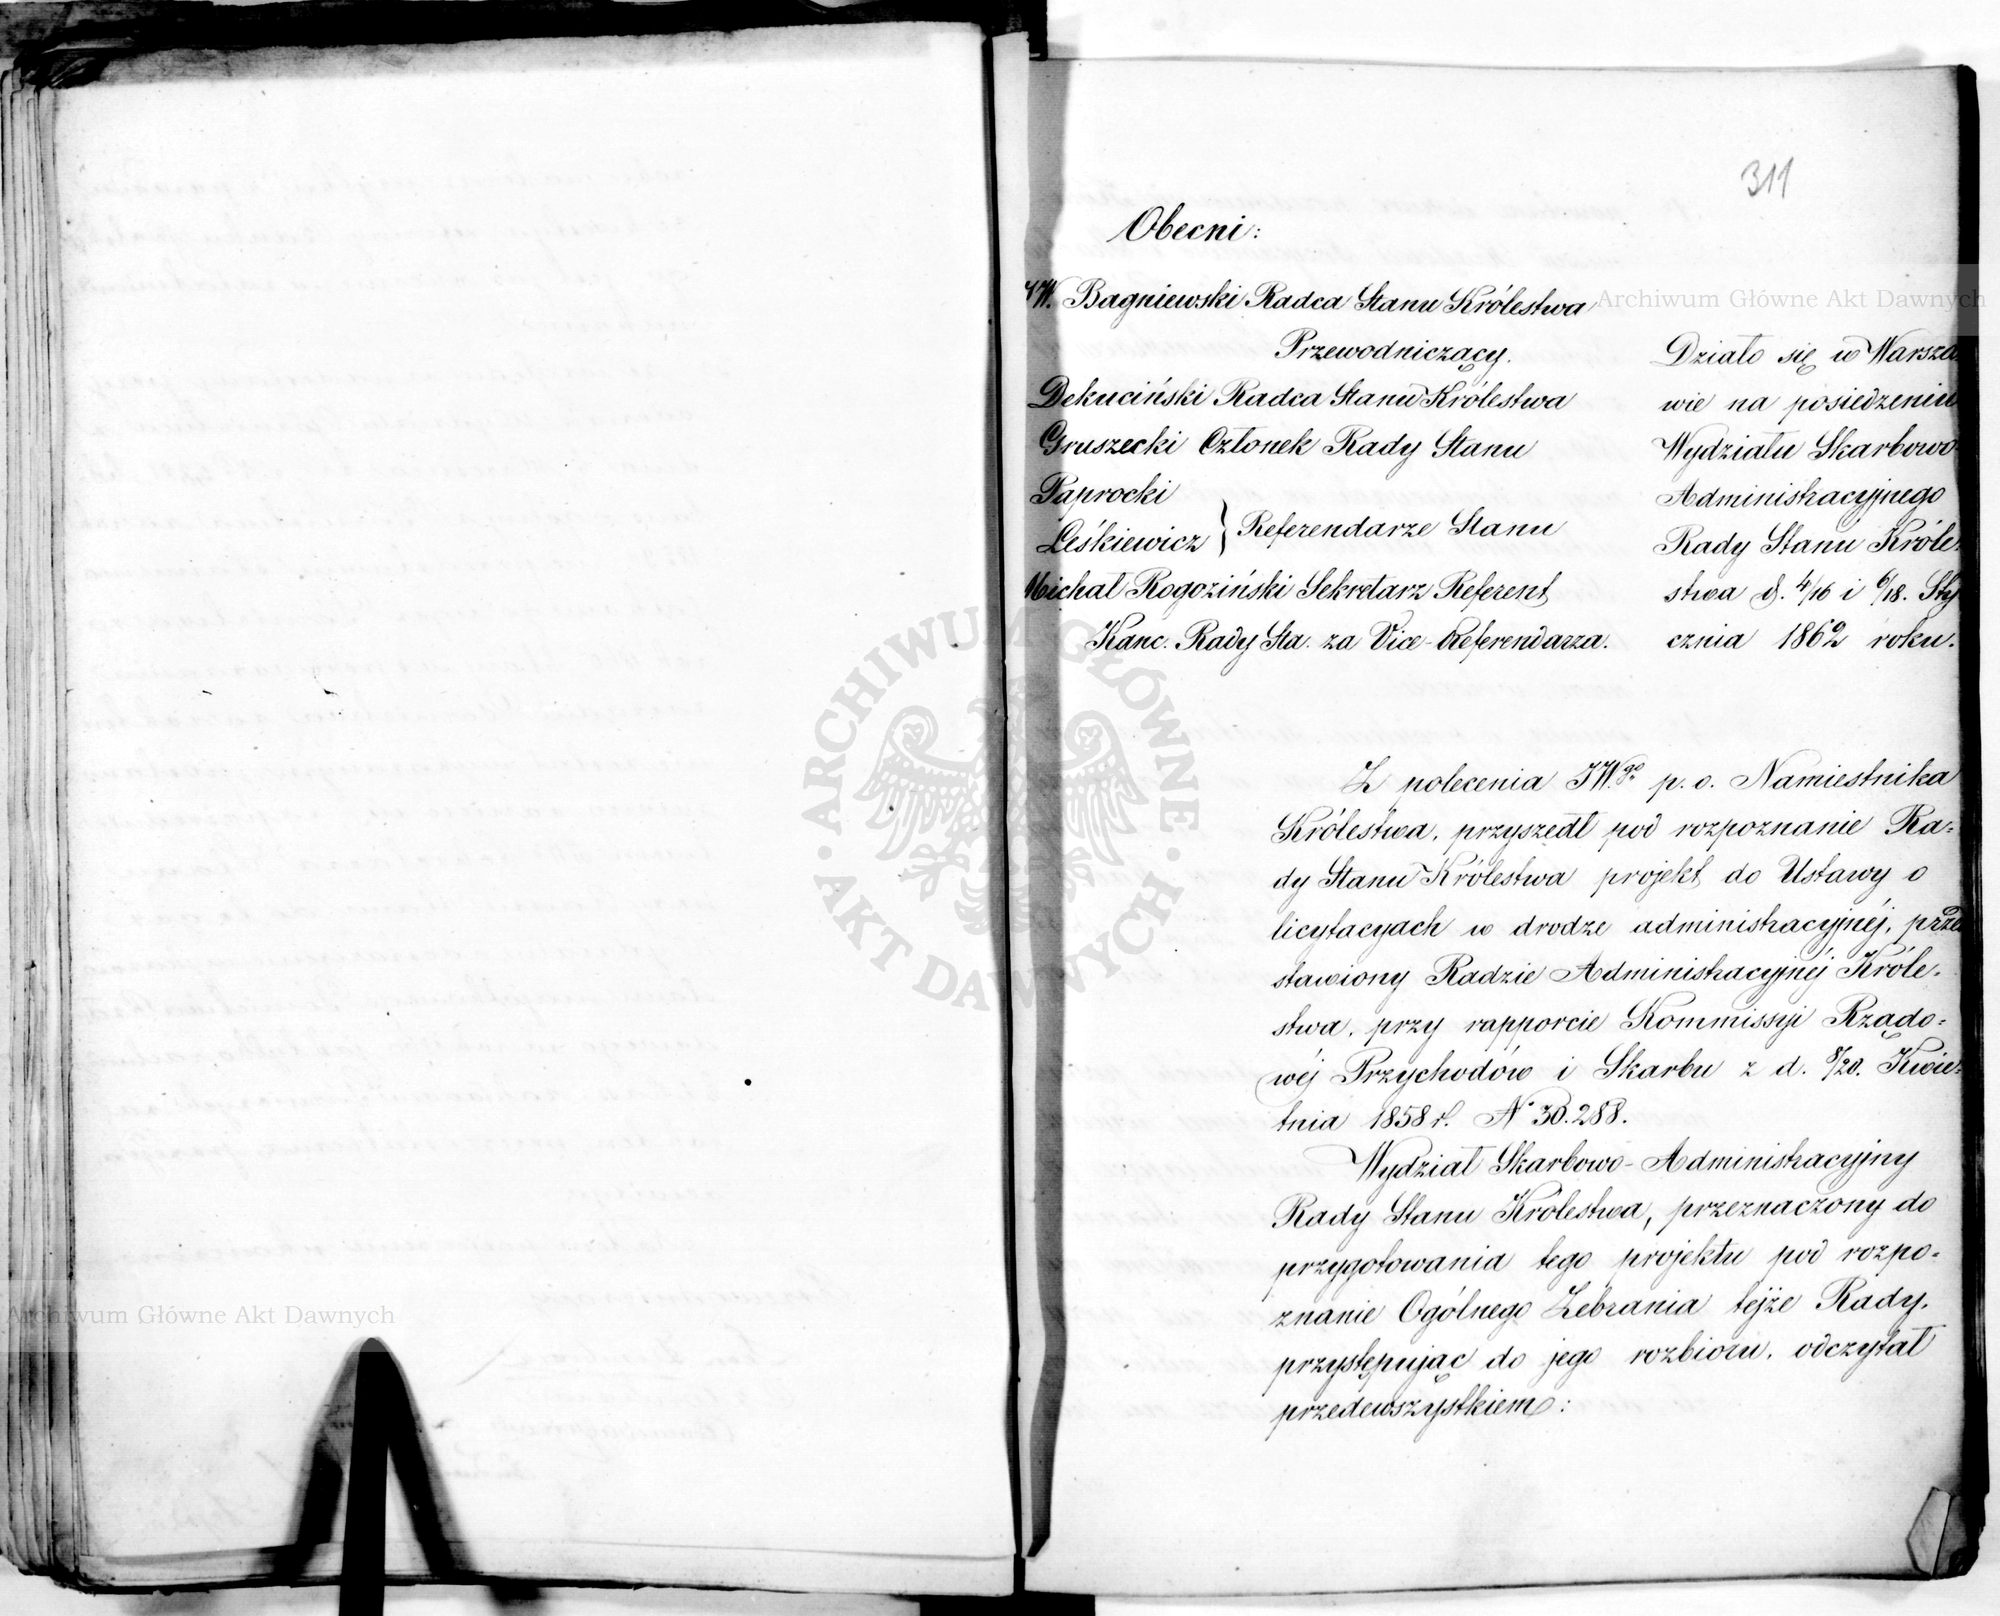 311
Obecni:
JW. Bagniewski Radca Stanu Królestwa
Przewodniczący.
Dekuciński Radca Stanu Królestwa
Gruszecki Członek Rady Stanu
Paprocki
Leśkiewicz } Referendarze Stanu
Michał Rogoziński Sekretarz Referent
Kanc. Rady Sta. za Vice-Referendarza.
Działo się w Warsza
wie na posiedzeniu
Wydziału Skarbowo
Administracyjnego
Rady Stanu Króle-
stwa d. 4/16 i 6/18. Sty
cznia 1862 roku.
Z polecenia JW.go p. o. Namiestnika
Królestwa, przyszedł pod rozpoznanie Ra-
dy Stanu Królestwa projekt do Ustawy o
licytacyach w drodze administracyjnéj, przed
stawiony Radzie Administracyjnéj Króle-
stwa, przy rapporcie Kommissyi Rządo-
wéj Przychodów i Skarbu z d. 8/20. Kwie-
tnia 1858 r. N° 30.288.
Wydział Skarbowo-Administracyjny
Rady Stanu Królestwa, przeznaczony do
przygotowania tego projektu pod rozpo-
znanie Ogólnego Zebrania tejże Rady,
przystępując do jego rozbioru, odczytał
przedewszystkiem:
Archiwum Główne Akt Dawnych
Archiwum Główne Akt Dawnych
ARCHIWUM GŁÓWNE · AKT DAWNYCH ·